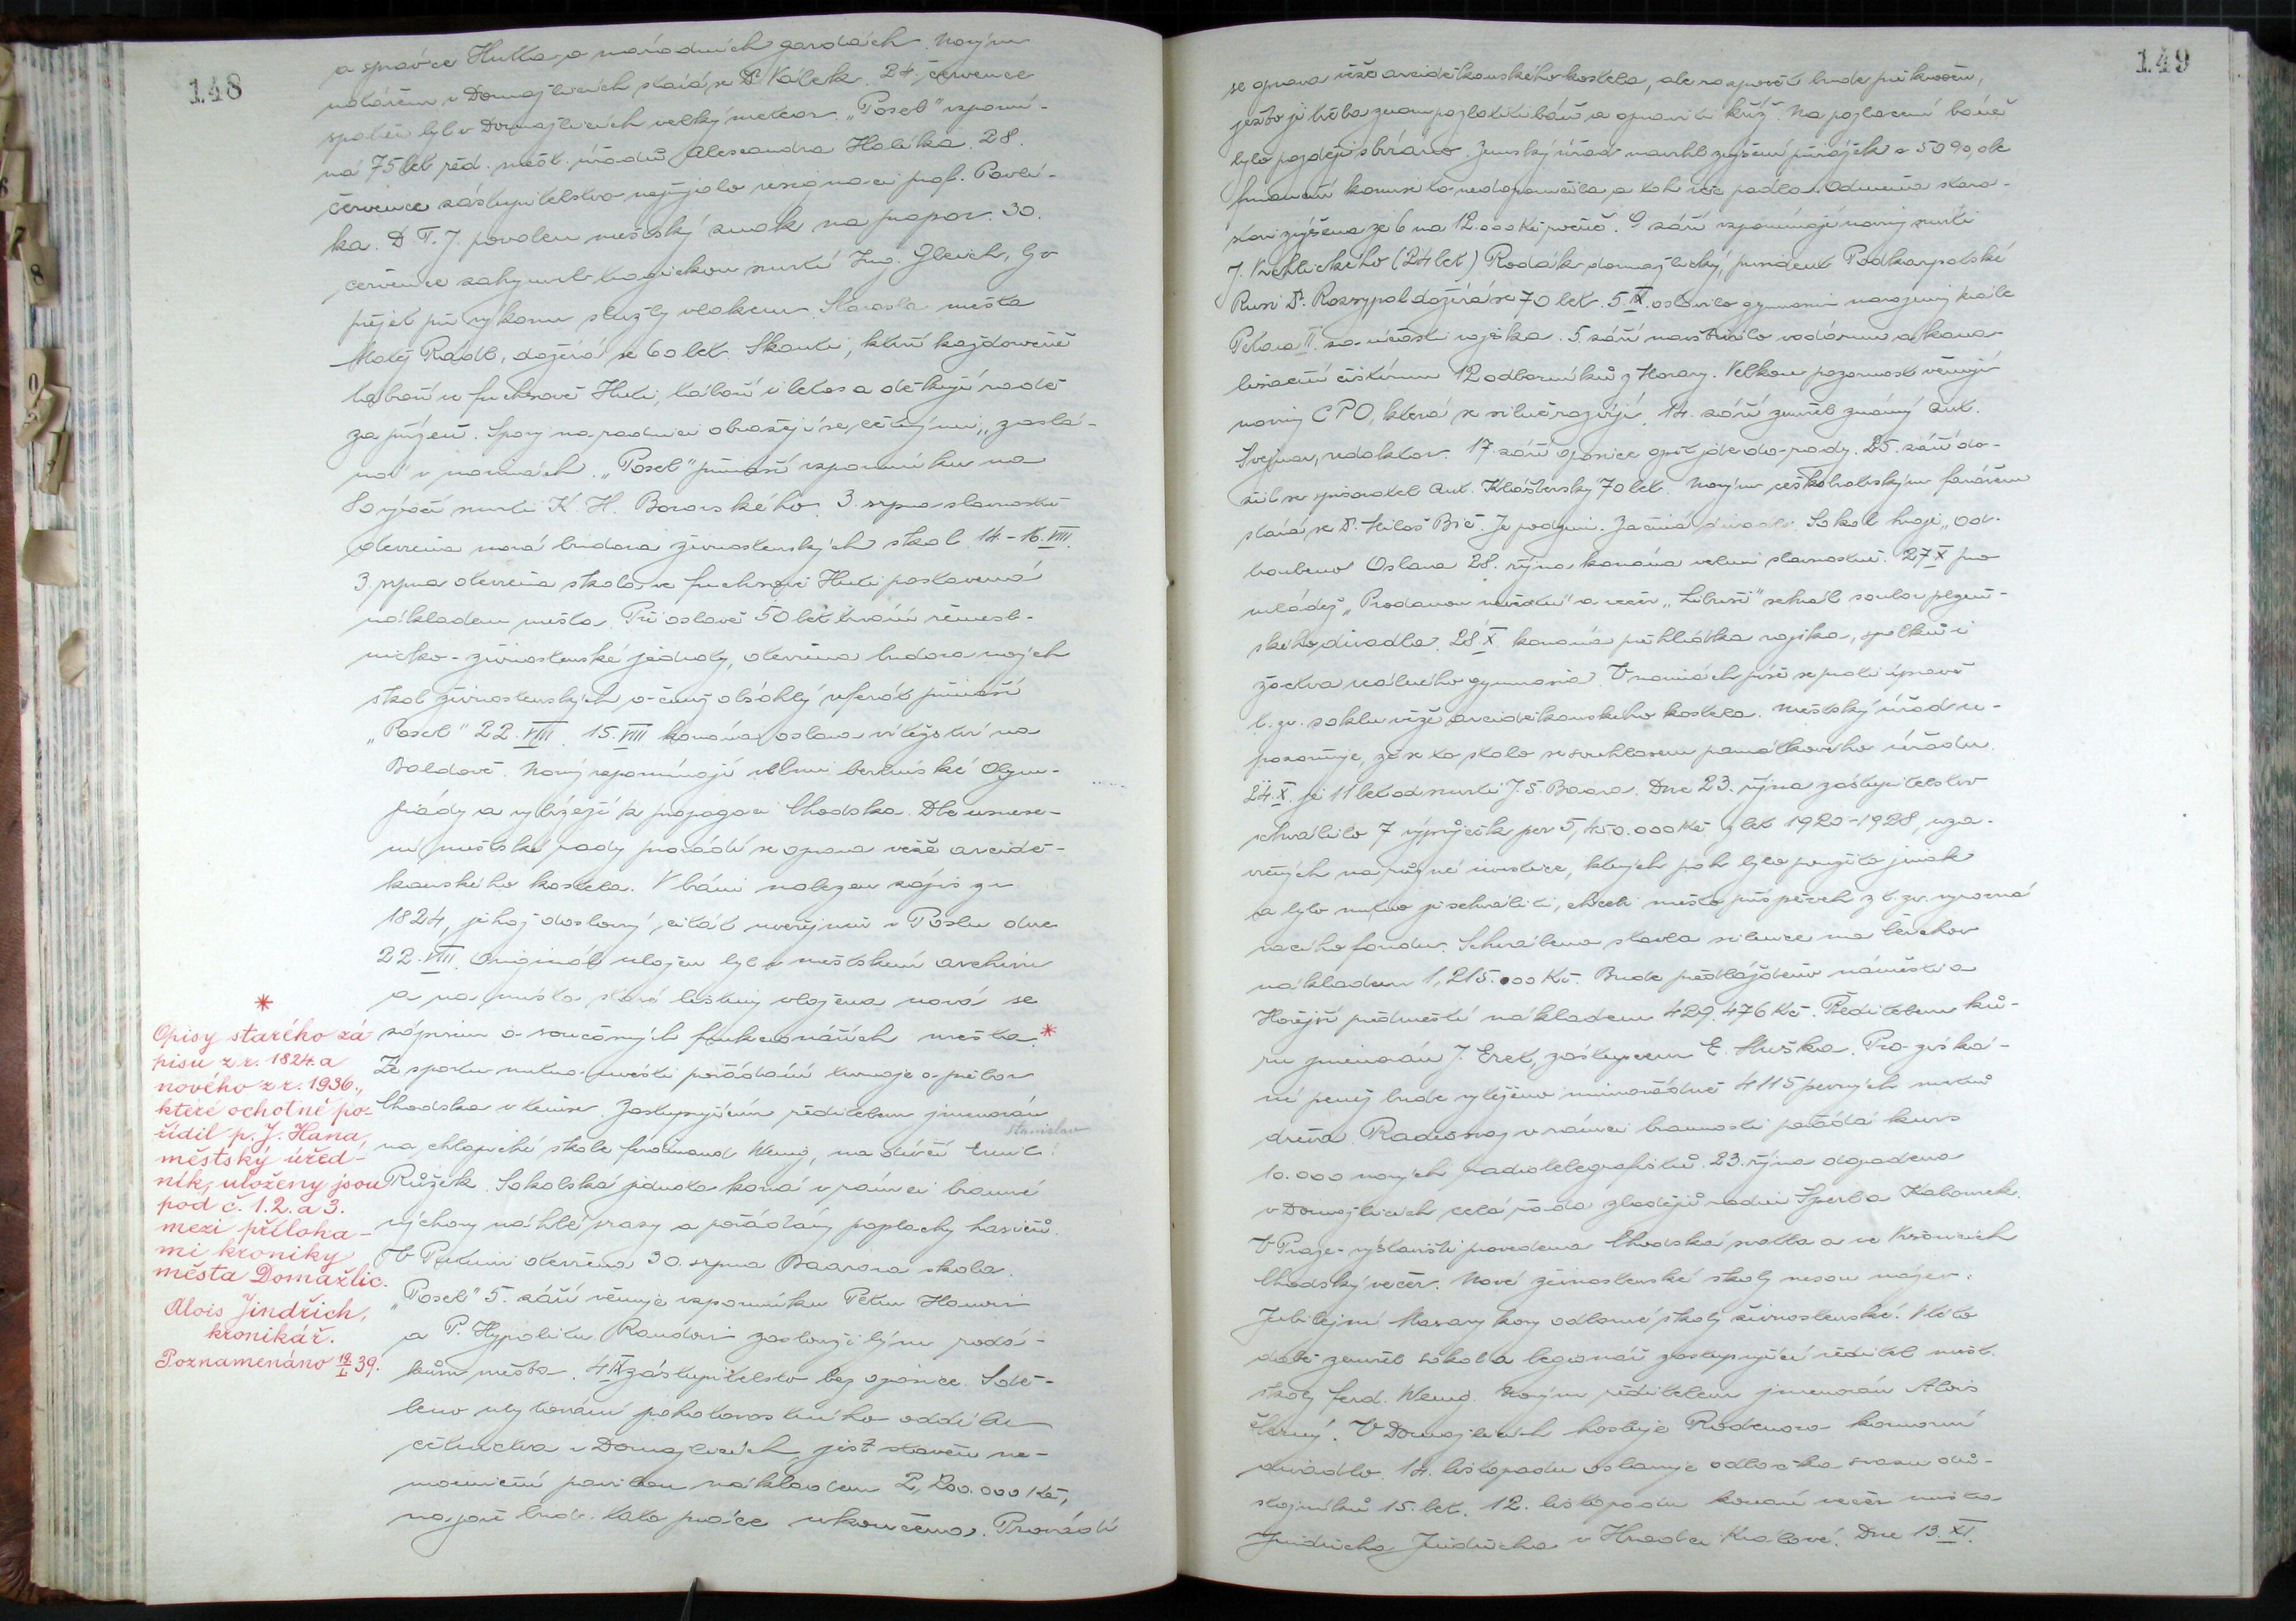 148
a správce Hutta o národních gardách. Novým
notářem v Domažlicích stává se Dr. Válek. 24. července
spatřen byl v Domažlicích velký meteor. „Posel" vzpomí-
ná 75 let řed. měst. úřadů Alexandra Halíka. 28.
července zastupitelstvo nepřijalo resignaci prof. Pavlí-
ka. D. T. J. povolen městský znak na prapor. 30.
července zahynul tragickou smrtí Ing. Gleich, byv
přejet při výkonu služby vlakem. Starosta města
Matěj Radl, dožívá se 60 let. Skauti, kteří každoročně
táboří ve Fuchsově Huti, táboří i letos a děkují radě
za přízeň. Spory na radnici obrážejí se četnými „zaslá-
no" v novinách. „Posel" přináší vzpomínku na
80 výročí smrti K. H. Borovského. 3. srpna slavnostně
otevřena nová budova živnostenských škol. 14-16. VIII.
3. srpna otevřena škola ve Fuchsově Huti postavená
nákladem města. Při oslavě 50 let trvání řemesl-
nicko-živnostenské jednoty, otevřena budova nových
škol živnostenských o čemž obsáhlý referát přináší
„Posel" 22. VIII. 15. VIII konána oslava vítězství na
Baldově. Noviny vzpomínají velmi berlínské Olym-
piády a vybízejí k propagaci Chodska. Dle usnese-
ní městské rady provádí se oprava věže arciděkan-
kanského kostela. V báni nalezen zápis z r.
1824, jehož doslovný citát uveřejněn v Poslu dne
22. VIII. Originál uložen byl v městském archivu
a na místo staré listiny vložena nová se
zápisem o současných funkcionářích města. *
Ze sportu nutno uvésti pořádání turnaje o přebor
Chodska v tenise. Zastupujícím ředitelem jmenován
na chlapecké škole Ferdinand Wenig, na dívčí Emil
Stanislav
Růžek. Sokolská jednota koná v rámci branné
výchovy náhlé srazy a pořádány poplachy hasičů.
V Putimi otevřena 30. srpna Baarova škola.
„Posel" 5. září věnuje vzpomínku Petru Hanovi
a P. Hypolitu Randovi zasloužilým rodá-
kům města. 4. IX zastupitelstvo bez oposice. Sdě-
leno ubytování pohotovostního oddílu
četnictva v Domažlicích, jest stavěn ne-
mocniční pavilon nákladem 2,200.000 Kč,
na jaře bude tato práce ukončena. Provádí
*
Opisy starého zá-
pisu z r. 1824. a
nového z r. 1936.,
které ochotně po-
řídil p. J. Hana,
městský úřed-
ník, uloženy jsou
pod č. 1. 2. a 3.
mezi příloha-
mi kroniky
města Domažlic.
Alois Jindřich,
kronikář.
Poznamenáno 19/I. 39.
149
se oprava věže arciděkanského kostela, ale rozpočet bude překročen,
ježto je třeba znovu pozlatiti báň a opraviti kříž. Na pozlacení báně
bylo později sbíráno. Zemský úřad navrhl zvýšení přirážek o 50 %, ale
finanční komise to nedoporučila, a tak věc padla. Odměna staro-
stovi zvýšena ze 6 na 12.000 Kč ročně. 9 září vzpomínají noviny smrti
J. Vrchlického (24 let) Rodák domažlický, president Podkarpatské
Rusi Dr. Rozsypal dožívá se 70 let. 5. IX. oslavilo gymnasium narozeniny krále
Petara II. za účasti vojska. 5. září navštívilo vodárnu a kana-
lisační čistírnu 12 odborníků z Moravy. Velkou pozornost věnují
noviny CPO, která se silně rozvíjí. 14. září zemřel známý Ant.
Švejnar, redaktor. 17. září oposice opět jde do rady. 25. září do-
žil se spisovatel Ant. Klášterský 70 let. Novým českobratrským farářem
stává se Dr. Miloš Bič. Je podzim. Začíná divadlo. Sokol hraje „Od-
loučeno Oslava 28. října konána velmi slavnostně. 27. X pro
mládež „Prodanou nevěstu" a večer „Libuši" sehrál soubor plzeň-
ského divadla. 28. X. konána přehlídka vojska, spolků i
žactva reálného gymnasia. V novinách píší se proti úpravě
t. zv. soklu věže arciděkanského kostela. Městský úřad u-
pozorňuje, že se to stalo se souhlasem památkového úřadu.
24. X. je 11 let od smrti J. Š. Baara. Dne 23. října zastupitelstvo
schválilo 7 výpůjček per 5,450.000 Kč z let 1920-1928, uza-
vřených na různé investice, kterých pak bylo použito jinak
a bylo nutno je schváliti, chce-li město příspěvek z t. zv. vyrovná-
vacího fondu. Schválena stavba silnice na
nákladem 1,215.000 Kč. Bude předlážděno náměstí a
Hořejší předměstí nákladem 429.476 Kč. Ředitelem ků-
ru jmenován J. Eret, zástupcem E. Muška. Pro získá-
ní peněz bude vytěženo mimořádně 4115 pevných metrů
dřeva. Radiosvaz v rámci brannosti pořádá kurs
10.000 nových radiotelegrafistů. 23. října dopadena
v Domažlicích celá řada zlodějů vedení Šperl a Kahovek.
V Praze-výstaviště provedena Chodská svatba a ve Kdounicích
Chodský večer. Nové živnostenské školy nesou název:
Jubilejní Masarykovy odborné školy živnostenské. V této
době zemřel sokol a legionář zastupující ředitel měst.
školy Ferd. Wenig. Novým ředitelem jmenován Alois
Černý. V Domažlicích hostuje Rodenovo komorní
divadlo. 14. listopadu oslavuje odbočka svazu dů-
stojníků 15. let. 12. listopadu konán večer mistra
Jindřicha Jindřicha v Hradci Králové. Dne 13. XI.